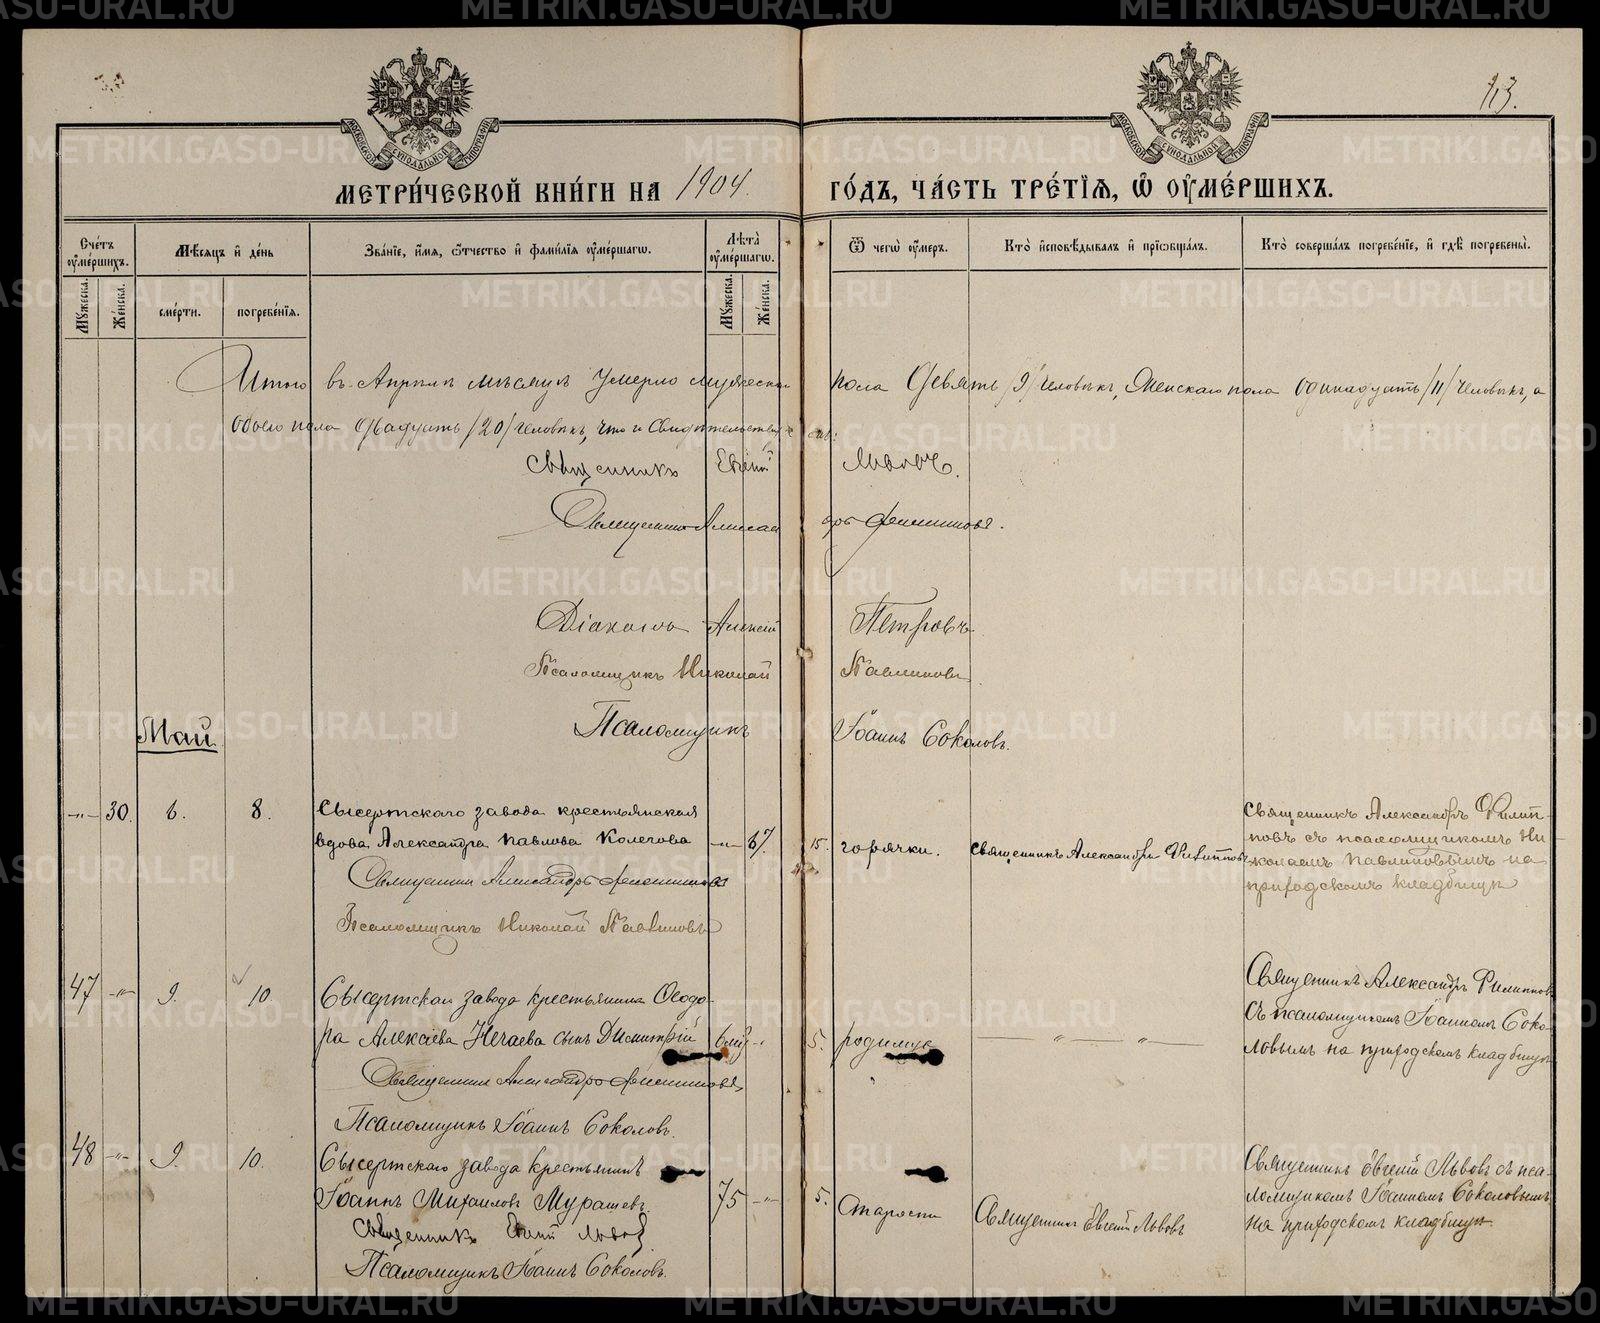 913.
МЕТРИ́ЧЕСКОЙ КНИ́ГИ НА 1904. ГО́ДЪ, ЧА́СТЬ ТРЕ́ТІѦ, Ѿ ОУМЕ́РШИХЪ.
Сче́тъ оуме́ршихъ.
Мѣ́сяцъ и҆ де́нь
Зва́нїе, и҆́мя, ѻ҆́тчество и҆ фамилїя оуме́ршагѡ.
Лѣ́та оуме́ршагѡ.
Ѿ чегѡ̀ оу́меръ.
Кто̀ и҆сповѣ́дывалъ и҆ прїѡбща́лъ.
Кто̀ соверша́лъ погребе́нїе, и҆ гдѣ̀ погребены̀.
Мꙋ́жеска. Же́нска. сме́рти. погребе́нїя. Мꙋ́жеска. Же́нска.
Итого въ Апрѣлѣ мѣсяцѣ умерло мужеска пола девять /9/ человѣкъ, женскаго пола одинадцать /11/ человѣкъ, а
обоего пола двадцать /20/ человѣкъ, что и свидѣтельствуютъ:
Священникъ Евгеній Львовъ.
Священникъ Александръ Филипповъ.
Діаконъ Алексій Петровъ
Псаломщикъ Николай Павлиновъ
Псаломщикъ Іоаннъ Соколовъ.
Май
-"- 30. 6. 8. Сысертскаго завода крестьянская
вдова Александра Павлова Колегова -"- 67. 15. горячки. Священникъ Александръ Филипповъ
Священникъ Александръ Филипповъ
Псаломщикъ Николай Павлиновъ
Священникъ Александръ Филип-
повъ съ псаломщикомъ Ни
колаемъ Павлиновымъ на
приходскомъ кладбищѣ
47 -"- 9. 10. Сысертскаго завода крестьянина Ѳеодо-
ра Алексѣева Нечаева сынъ Димитрій 6 -"- 5. родимца " "
Священникъ Александръ Филипповъ
Псаломщикъ Іоаннъ Соколовъ.
Священникъ Александръ Филипповъ
съ псаломщикомъ Іоанномъ Соко-
ловымъ на приходскомъ кладбищѣ
48 -"- 9. 10. Сысертскаго завода крестьянинъ
Іоаннъ Михаиловъ Мурашевъ. 75 -"- 5. Старости Священникъ Евгеній Львовъ
Священникъ Евгеній Львовъ
Псаломщикъ Іоаннъ Соколовъ.
Священникъ Евгеній Львовъ съ пса-
ломщикомъ Іоанномъ Соколовымъ
на приходскомъ кладбищѣ.
METRIKI.GASO-URAL.RU